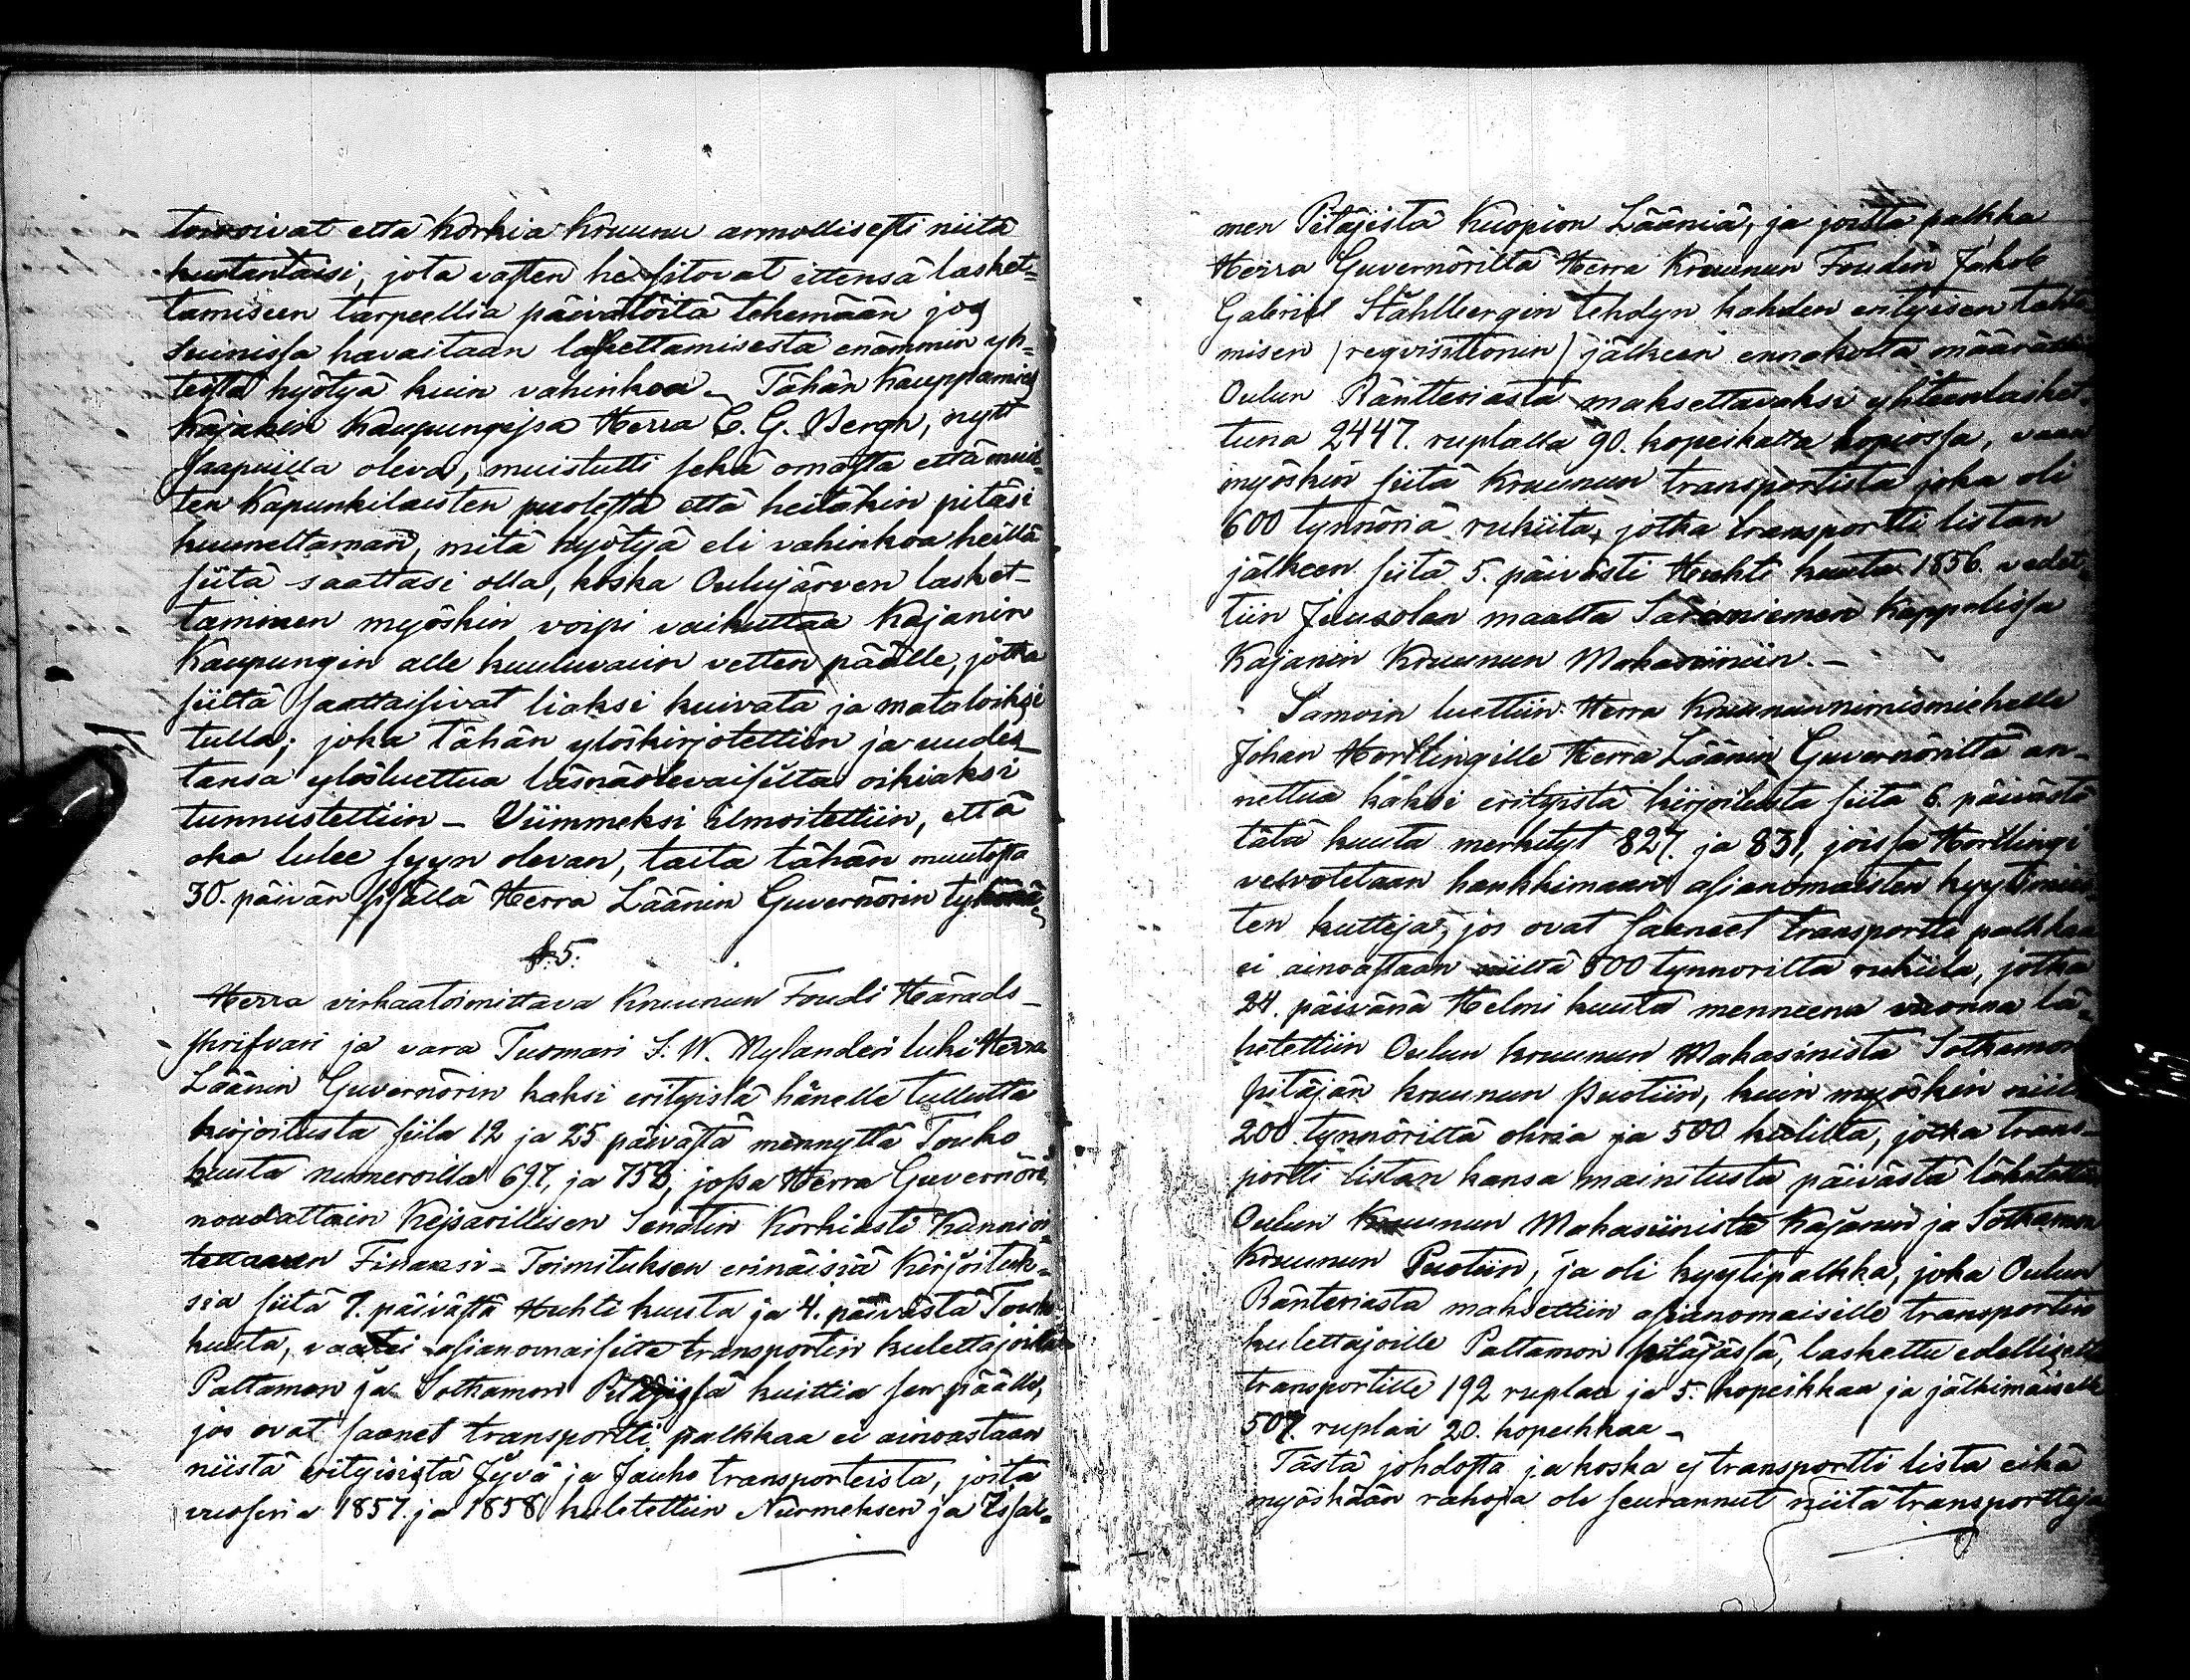 toivoivat että Korkia Kruunu armollisesti niitä
kustantaisi, jota vasten he sitovat ittensä lasket=
tamiseen tarpeellia päivätöitä tekemään jos
suinissa havaitaan laskettamisesta enämmin yh=
teistä hyötyä kuin vahinkoa_ Tähän Kauppamies
Kajanin Kaupungissa Herra C. G. Bergh, nytt
saapuilla oleva, muistutti sekä omasta että muit=
ten Kapunkilaisten puolesta että heitäkin pitäsi
kuuneltaman, mitä hyötyä eli vahinkoa heillä
siitä saattasi olla, koska Oulujärven lasket-
taminen myöskin voipi vaikuttaa Kajanin
Kaupungin alle kuuluvaiin vetten päälle, jotka
siittä saattaisivat liaksi kuivata ja mataloiksi
tulla; joka tähän ylöskirjotettiin ja uudes_
tansa ylösluettua läsnäolevaisilta oikiaksi
tunnustettiin_ Viimmeksi ilmoitettiin, että
oka lulee syyn olevan, taita tähän muutosta
30. päivän sisällä Herra Läänin Guvernörin tykönä
§. 5.
Herra virkaatoimittava Kruunun Foudi Härads_
skrifvari ja vara Tuomari J. W. Nylander luki Herra
Läänin Guvernörin kaksi erityistä hänelle tullutta
kirjoitusta siita 12 ja 25 päivästä mennyttä Touko
kuuta numeroilla 697, ja 758, jossa Herra Guvernöri
noudattain Kejsarillisen Senatin Korkiasti Kunnioi
tettavan Finansi-Toimituksen erinäisiä Kirjoituk=
sia siitä 7. päivästä Huhti kuuta ja 4. päivästä Touko
kuuta, vaatei asianomaisilta transportin kulettajoilta
Paltamon ja Sotkamon Pitäjissä kuittia sen päälle,
jos ovat saanet transportti palkkaa ei ainoastaan
niistä erityisistä Jyvä ja Jauho transporteista, joita
vuosina 1857. ja 1858 kuletettiin Nurmeksen ja Iisal=
men Pitäjistä Kuopion Lääniä, ja joista palkka
Herra Guvernöriltä Herra Kruunun Foudin Jakob
Gabriel Ståhlbergin tehdyn kahden erityisen tahto=
misen (reqvisitionin) jälkeen ennakolta määrättiin
Oulun Ränteriastä maksettavaksi yhteenlasket=
tuna 2447. ruplalla 90. kopeikalla hopiossa, vaan
myöskin siitä Kruunun transportista joka oli
600 tynnöriä rukiita, jotka transportti listan
jälkeen siitä 5. päivästi Huhti kuuta 1856. vedet=
tiin Juusolan maalta Säräisniemen Kappelissa
Kajanin Kruunun Makasiiniin._
Samoin luettiin Herra Kruununnimismiehelle
Johan Hortlingille Herra Läänin Guvernöriltä an_
nettua kaksi erityistä kirjoitusta siitä 6. päivästä
tätä kuuta merkityt 827. ja 831, joissa Hortlingi
velvotetaan hankkimaan asianomaisten kyytimies
ten kuttija, jos ovat saaneet transportti palkkaa
ei ainoastaan niiltä 500 tynnoriltä rukiita, jotka
24. päivänä Helmi kuuta menneenä vuonna lä=
hetettiin Oulun kruunun Makasinista Sotkamon
pitäjän kruunun Puotiin, kuin myöskin niiltä
200. tynnöriltä ohria ja 500 kulilta, jotka trans_
portti listan kansa mainitusta päivästä lähetettiin
Oulun Kruunun Makasiinista Kajanin ja Sotkamon
Kruunun Puotiin, ja oli kyytipalkka, joka Oulun
Ränteriasta maksettiin asianomaisille transportin
kulettajoille Paltamon pitäjässä, laskettu edelliselle
transportille 192 ruplaa ja 5. kopeikkaa ja jälkimäiselle
507. ruplaa 20. kopeikkaa_
Tästä johdosta ja koska ej transportti lista eikä
myöskään rahoja ole seurannut niitä transportteja